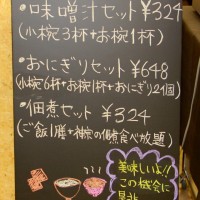 ・味噌汁セット ¥324
(小椀3杯+お椀1杯)
・おにぎりセット ¥648
(小椀6杯+お椀1杯+おにぎり2個)
・佃煮セット ¥324
(ご飯1膳+佃煮食べ放題)
美味しいよ!!
この機会に
是非